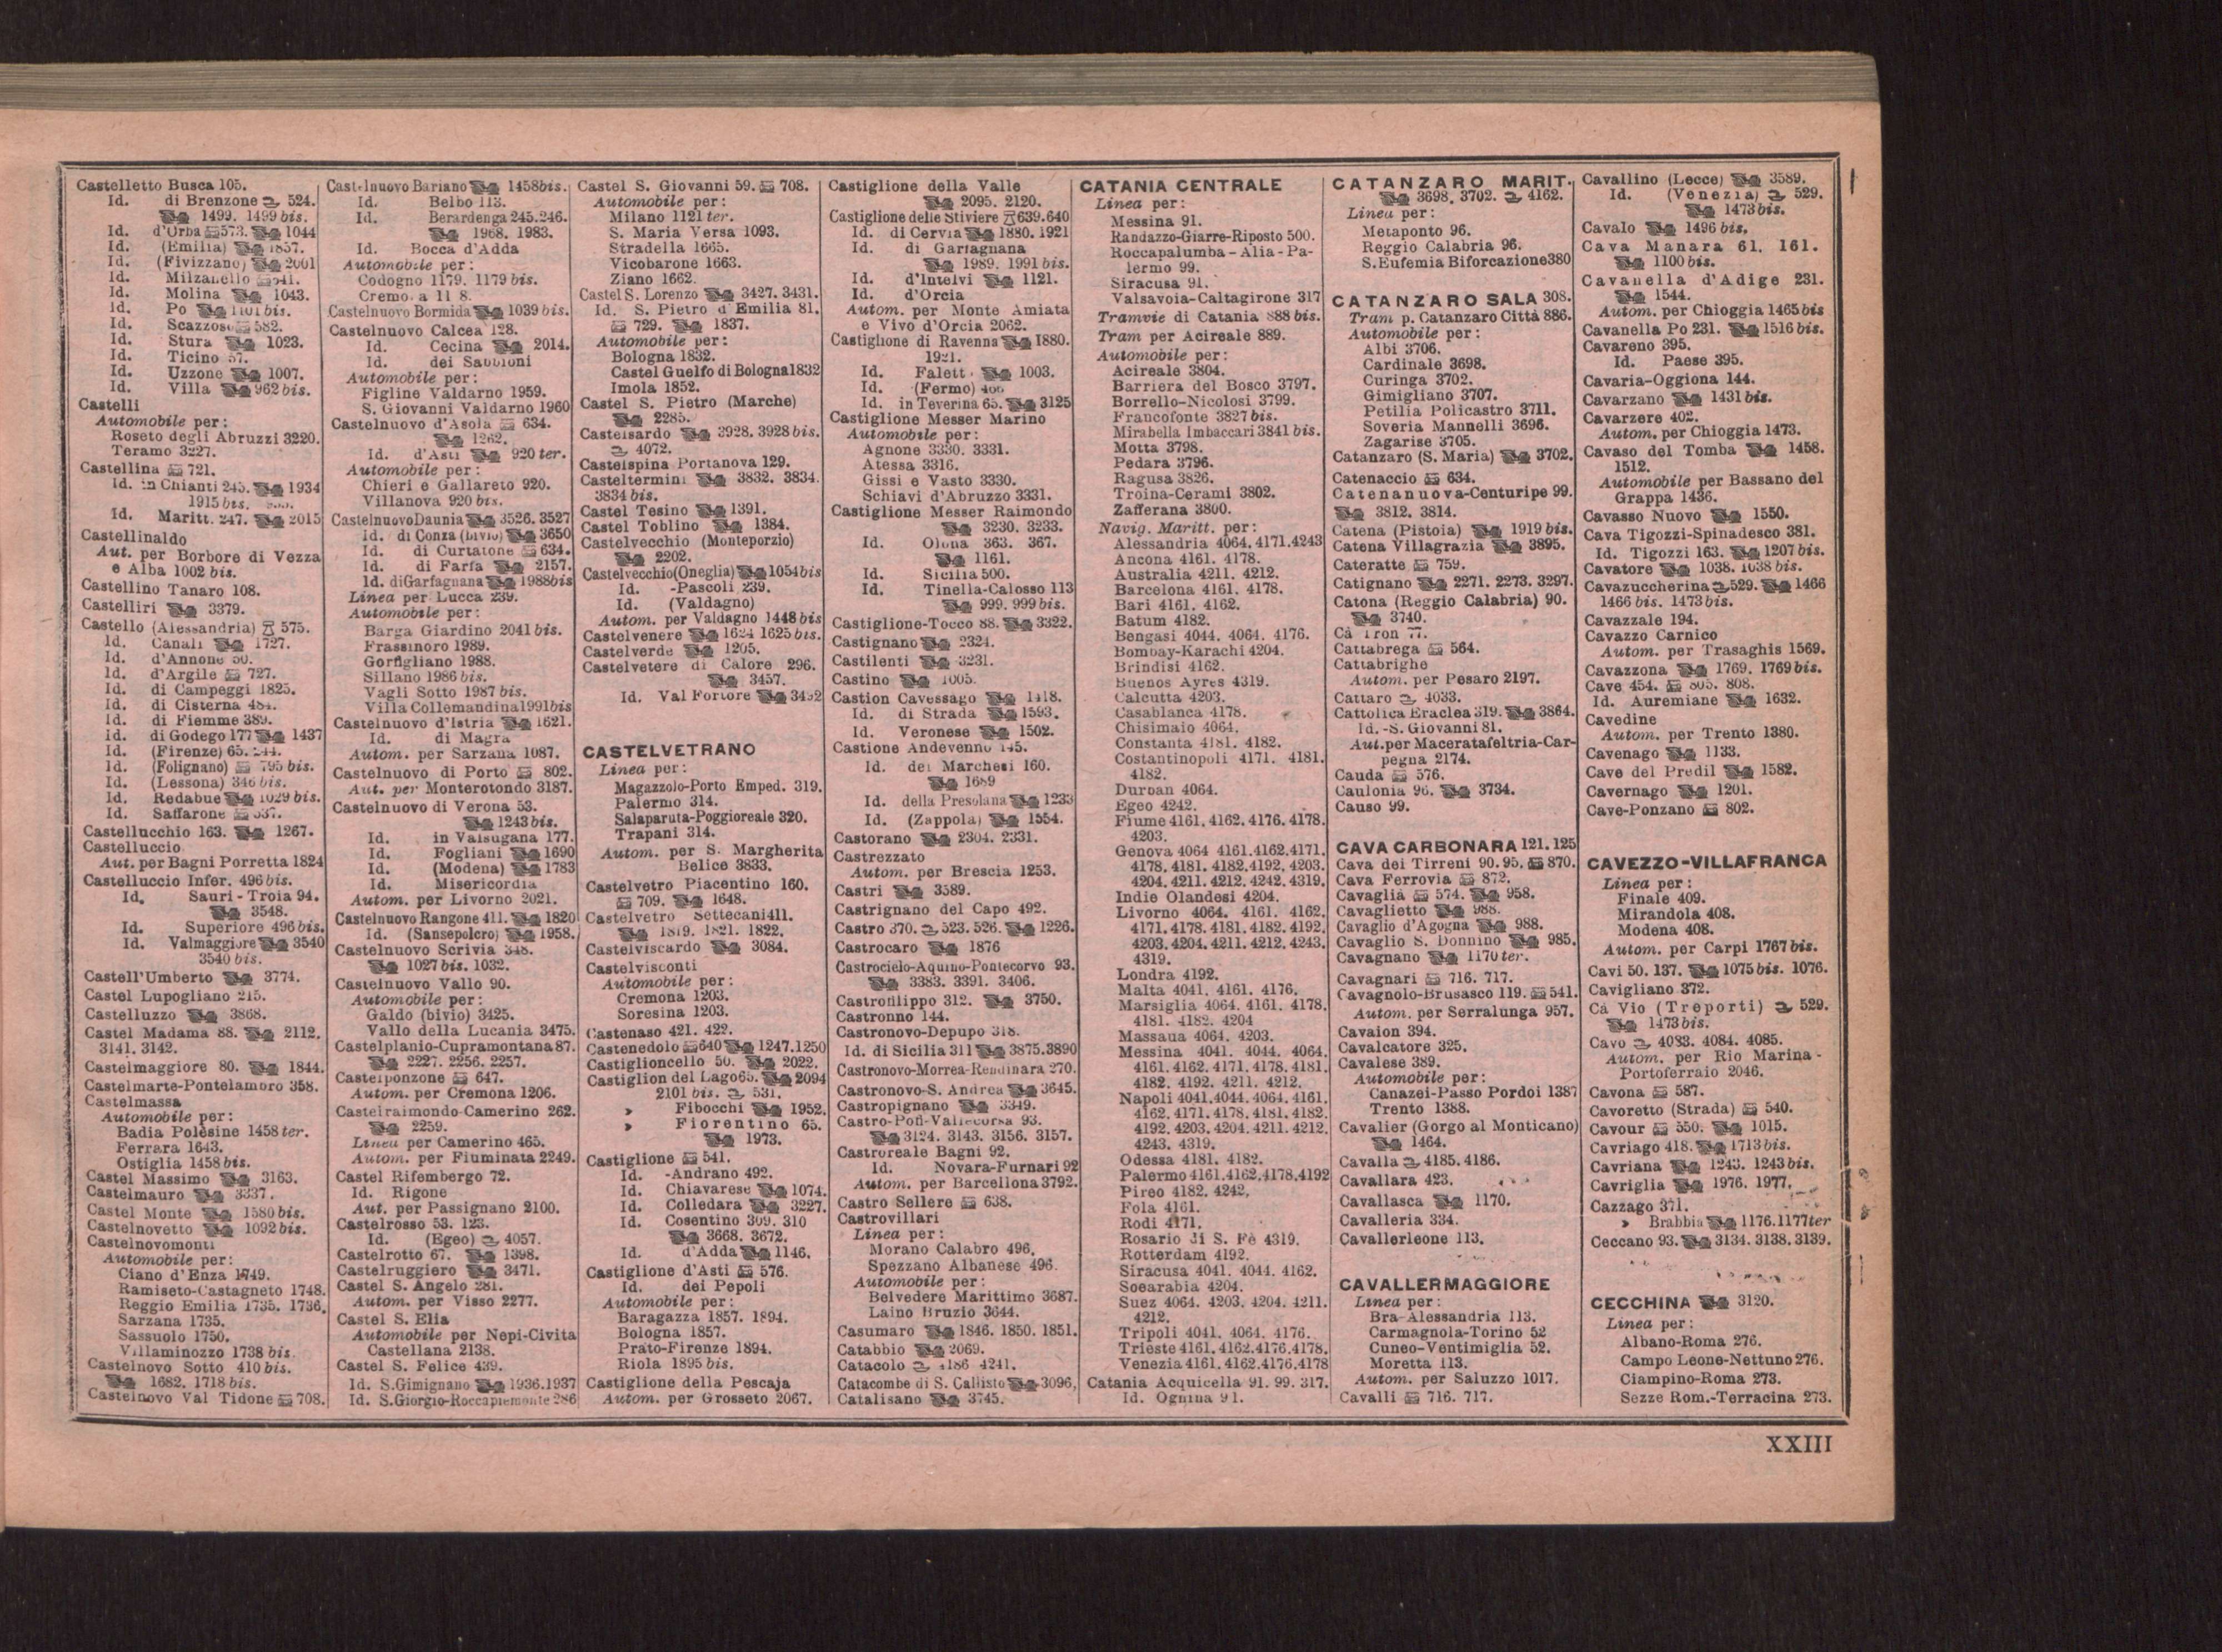 Castelletto Busca 105.
Id. di Brenzone 524.
1499. 1499 bis.
Id. d'Orba 573. 1044
Id. (Emilia) 1857.
Id. (Fivizzano) 2001
Id. Milzanello 541.
Id. Molina 1043.
Id. Po 1101 bis.
Id. Scazzoso 582.
Id. Stura 1023.
Id. Ticino 57.
Id. Uzzone 1007.
Id. Villa 962 bis.
Castelli
Automobile per:
Roseto degli Abruzzi 3220.
Teramo 3227.
Castellina 721.
Id. in Chianti 245. 1934
1915 bis.
Id. Maritt. 247. 2015
Castellinaldo
Aut. per Borbore di Vezza
e Alba 1002 bis.
Castellino Tanaro 108.
Castelliri 3379.
Castello (Alessandria) 575.
Id. Canali 1727.
Id. d'Annone 50.
Id. d'Argile 727.
Id. di Campeggi 1825.
Id. di Cisterna 484.
Id. di Fiemme 389.
Id. di Godego 177 1437
Id. (Firenze) 65. 244.
Id. (Folignano) 795 bis.
Id. (Lessona) 346 bis.
Id. Redabue 1029 bis.
Id. Saffarone 537.
Castellucchio 163. 1267.
Castelluccio
Aut. per Bagni Porretta 1824
Castelluccio Infer. 496 bis.
Id. Sauri-Troia 94.
3548.
Id. Superiore 496 bis.
Id. Valmaggiore 3540
3540 bis.
Castell'Umberto 3774.
Castel Lupogliano 215.
Castelluzzo 3868.
Castel Madama 88. 2112.
3141. 3142.
Castelmaggiore 80. 1844.
Castelmarte-Pontelambro 358.
Castelmassa
Automobile per:
Badia Polèsine 1458 ter.
Ferrara 1643.
Ostiglia 1458 bis.
Castel Massimo 3163.
Castelmauro 3337.
Castel Monte 1580 bis.
Castelnovetto 1092 bis.
Castelnovomonti
Automobile per:
Ciano d'Enza 1749.
Ramiseto-Castagneto 1748.
Reggio Emilia 1735. 1736.
Sarzana 1735.
Sassuolo 1750.
Villaminozzo 1738 bis.
Castelnovo Sotto 410 bis.
1682. 1718 bis.
Castelnovo Val Tidone 708.
Castelnuovo Bariano 1458 bis.
Id. Belbo 113.
Id. Berardenga 245.246.
1968. 1983.
Id. Bocca d'Adda
Automobile per:
Codogno 1179. 1179 bis.
Cremona
Castelnuovo Bormida 1039 bis.
Castelnuovo Calcea 128.
Id. Cecina 2014.
Id. dei Sabbioni
Automobile per:
Figline Valdarno 1959.
S. Giovanni Valdarno 1960
Castelnuovo d'Asola 634.
1262.
Id. d'Asti 920 ter.
Automobile per:
Chieri e Gallareto 920.
Villanova 920 bis.
Castelnuovo Daunia 3526. 3527
Id. di Conza (bivio) 3650
Id. di Curtatone 634.
Id. di Farfa 2157.
Id. di Garfagnana 1988 bis
Linea per Lucca 239.
Automobile per:
Barga Giardino 2041 bis.
Frassinoro 1989.
Gorfigliano 1988.
Sillano 1986 bis.
Vagli Sotto 1987 bis.
Villa Collemandina 1991 bis
Castelnuovo d'Istria 1621.
Id. di Magra
Autom. per Sarzana 1087.
Castelnuovo di Porto 802.
Aut. per Monterotondo 3187.
Castelnuovo di Verona 53.
1243 bis.
Id. in Valsugana 177.
Id. Fogliani 1690
Id. (Modena) 1783
Id. Misericordia
Autom. per Livorno 2021.
Castelnuovo Rangone 411. 1820
Id. (Sansepolcro) 1958.
Castelnuovo Scrivia 348.
1027 bis. 1032.
Castelnuovo Vallo 90.
Automobile per:
Galdo (bivio) 3425.
Vallo della Lucania 3475.
Castelplanio-Cupramontana 87.
2227. 2256. 2257.
Castelponzone 647.
Autom. per Cremona 1206.
Castelraimondo-Camerino 262.
2259.
Linea per Camerino 465.
Autom. per Fiuminata 2249.
Castel Rifembergo 72.
Id. Rigone
Aut. per Passignano 2100.
Castelrosso 53. 123.
Id. (Egeo) 4057.
Castelrotto 67. 1398.
Castelruggiero 3471.
Castel S. Angelo 281.
Autom. per Visso 2277.
Castel S. Elia
Automobile per Nepi-Civita
Castellana 2138.
Castel S. Felice 439.
Id. S.Gimignano 1936.1937
Id. S.Giorgio-Roccapiemonte 286
Castel S. Giovanni 59. 708.
Automobile per:
Milano 1121 ter.
S. Maria Versa 1093.
Stradella 1665.
Vicobarone 1663.
Ziano 1662.
Castel S. Lorenzo 3427. 3431.
Id. S. Pietro d'Emilia 81.
729. 1837.
Automobile per:
Bologna 1832.
Castel Guelfo di Bologna 1832
Imola 1852.
Castel S. Pietro (Marche)
2285.
Castelsardo 3928. 3928 bis.
4072.
Castelspina Portanova 129.
Casteltermini 3832. 3834.
3834 bis.
Castel Tesino 1391.
Castel Toblino 1384.
Castelvecchio (Monteporzio)
2202.
Castelvecchio (Oneglia) 1054 bis
Id. -Pascoli 239.
Id. (Valdagno)
Autom. per Valdagno 1448 bis
Castelvenere 1624 1625 bis.
Castelverde 1205.
Castelvetere di Calore 296.
3457.
Id. Val Fortore 3452
CASTELVETRANO
Linea per:
Magazzolo-Porto Emped. 319.
Palermo 314.
Salaparuta-Poggioreale 320.
Trapani 314.
Autom. per S. Margherita
Belice 3833.
Castelvetro Piacentino 160.
709. 1648.
Castelvetro Settecani 411.
1819. 1821. 1822.
Castelviscardo 3084.
Castelvisconti
Automobile per:
Cremona 1203.
Soresina 1203.
Castenaso 421. 422.
Castenedolo 640 1247.1250
Castiglioncello 50. 2022.
Castiglion del Lago 65. 2094
2101 bis. 531.
» Fibocchi 1952.
» Fiorentino 65.
1973.
Castiglione 541.
Id. -Andrano 492.
Id. Chiavarese 1074.
Id. Colledara 3227.
Id. Cosentino 309. 310
3668. 3672.
Id. d'Adda 1146.
Castiglione d'Asti 576.
Id. dei Pepoli
Automobile per:
Baragazza 1857. 1894.
Bologna 1857.
Prato-Firenze 1894.
Riola 1895 bis.
Castiglione della Pescaja
Autom. per Grosseto 2067.
Castiglione della Valle
2095. 2120.
Castiglione delle Stiviere 639.640
Id. di Cervia 1880. 1921
Id. di Garfagnana
1989. 1991 bis.
Id. d'Intelvi 1121.
Id. d'Orcia
Autom. per Monte Amiata
e Vivo d'Orcia 2062.
Castiglione di Ravenna 1880.
1921.
Id. Falett. 1003.
Id. (Fermo) 466
Id. in Teverina 65. 3125
Castiglione Messer Marino
Automobile per:
Agnone 3330. 3331.
Atessa 3316.
Gissi e Vasto 3330.
Schiavi d'Abruzzo 3331.
Castiglione Messer Raimondo
3230. 3233.
Id. Olona 363. 367.
1161.
Id. Sicilia 500.
Id. Tinella-Calosso 113
999. 999 bis.
Castiglione-Tocco 88. 3322.
Castignano 2324.
Castilenti 3231.
Castino 1005.
Castion Cavessago 1418.
Id. di Strada 1593.
Id. Veronese 1502.
Castione Andevenno 145.
Id. dei Marchesi 160.
1689
Id. della Presolana 1233
Id. (Zappola) 1554.
Castorano 2304. 2331.
Castrezzato
Autom. per Brescia 1253.
Castri 3589.
Castrignano del Capo 492.
Castro 370. 523. 526. 1226.
Castrocaro 1876
Castrocielo-Aquino-Pontecorvo 93.
3383. 3391. 3406.
Castrofilippo 312. 3750.
Castronno 144.
Castronovo-Depupo 318.
Id. di Sicilia 311 3875.3890
Castronovo-Morrea-Rendinara 270.
Castronovo-S. Andrea 3645.
Castropignano 3349.
Castro-Pofi-Vallecorsa 93.
3124. 3143. 3156. 3157.
Castroreale Bagni 92.
Id. Novara-Furnari 92
Autom. per Barcellona 3792.
Castro Sellere 638.
Castrovillari
Linea per:
Morano Calabro 496.
Spezzano Albanese 496.
Automobile per:
Belvedere Marittimo 3687.
Laino Bruzio 3644.
Casumaro 1846. 1850. 1851.
Catabbio 2069.
Catacolo 4186 4241.
Catacombe di S. Callisto 3096.
Catalisano 3745.
CATANIA CENTRALE
Linea per:
Messina 91.
Randazzo-Giarre-Riposto 500.
Roccapalumba-Alia-Pa-
lermo 99.
Siracusa 91.
Valsavoia-Caltagirone 317
Tramvie di Catania 888 bis.
Tram per Acireale 889.
Automobile per:
Acireale 3804.
Barriera del Bosco 3797.
Borrello-Nicolosi 3799.
Francofonte 3827 bis.
Mirabella Imbaccari 3841 bis.
Motta 3798.
Pedara 3796.
Ragusa 3826.
Troina-Cerami 3802.
Zafferana 3800.
Navig. Maritt. per:
Alessandria 4064. 4171.4243
Ancona 4161. 4178.
Australia 4211. 4212.
Barcelona 4161. 4178.
Bari 4161. 4162.
Batum 4182.
Bengasi 4044. 4064. 4176.
Bombay-Karachi 4204.
Brindisi 4162.
Buenos Ayres 4319.
Calcutta 4203.
Casablanca 4178.
Chisimaio 4064.
Constanta 4181. 4182.
Costantinopoli 4171. 4181.
4182.
Durban 4064.
Egeo 4242.
Fiume 4161. 4162. 4176. 4178.
4203.
Genova 4064 4161.4162.4171.
4178. 4181. 4182.4192. 4203.
4204. 4211. 4212. 4242. 4319.
Indie Olandesi 4204.
Livorno 4064. 4161. 4162.
4171. 4178. 4181. 4182. 4192.
4203. 4204. 4211. 4212. 4243.
4319.
Londra 4192.
Malta 4041. 4161. 4176.
Marsiglia 4064. 4161. 4178.
4181. 4182. 4204
Massaua 4064. 4203.
Messina 4041. 4044. 4064.
4161. 4162. 4171. 4178. 4181.
4182. 4192. 4211. 4212.
Napoli 4041.4044. 4064. 4161.
4162. 4171. 4178. 4181. 4182.
4192. 4203. 4204. 4211. 4212.
4243. 4319.
Odessa 4181. 4182.
Palermo 4161.4162.4178.4192
Pireo 4182. 4242.
Pola 4161.
Rodi 4171.
Rosario di S. Fè 4319.
Rotterdam 4192.
Siracusa 4041. 4044. 4162.
Soearabia 4204.
Suez 4064. 4203. 4204. 4211.
4212.
Tripoli 4041. 4064. 4176.
Trieste 4161. 4162.4176.4178.
Venezia 4161. 4162.4176.4178
Catania Acquicella 91. 99. 317.
Id. Ognina 91.
CATANZARO MARIT.
3698. 3702. 4162.
Linea per:
Metaponto 96.
Reggio Calabria 96.
S.Eufemia Biforcazione 380
CATANZARO SALA 308.
Tram p. Catanzaro Città 886.
Automobile per:
Albi 3706.
Cardinale 3698.
Curinga 3702.
Gimigliano 3707.
Petilia Policastro 3711.
Soveria Mannelli 3696.
Zagarise 3705.
Catanzaro (S. Maria) 3702.
Catenaccio 634.
Catenanuova-Centuripe 99.
3812. 3814.
Catena (Pistoia) 1919 bis.
Catena Villagrazia 3895.
Cateratte 759.
Catignano 2271. 2273. 3297.
Catona (Reggio Calabria) 90.
3740.
Cà Tron 77.
Cattabrega 564.
Cattabrighe
Autom. per Pesaro 2197.
Cattaro 4033.
Cattolica Eraclea 319. 3864.
Id. -S. Giovanni 81.
Aut. per Macerata feltria-Car-
pegna 2174.
Cauda 576.
Caulonia 96. 3734.
Causo 99.
CAVA CARBONARA 121. 125
Cava dei Tirreni 90. 95. 870.
Cava Ferrovia 872.
Cavaglià 574. 958.
Cavaglietto 988.
Cavaglio d'Agogna 988.
Cavaglio S. Donnino 985.
Cavagnano 1170 ter.
Cavagnari 716. 717.
Cavagnolo-Brusasco 119. 541.
Autom. per Serralunga 957.
Cavaion 394.
Cavalcatore 325.
Cavalese 389.
Automobile per:
Canazei-Passo Pordoi 1387
Trento 1388.
Cavalier (Gorgo al Monticano)
1464.
Cavalla 4185. 4186.
Cavallara 423.
Cavallasca 1170.
Cavalleria 334.
Cavallerleone 113.
CAVALLERMAGGIORE
Linea per:
Bra-Alessandria 113.
Carmagnola-Torino 52
Cuneo-Ventimiglia 52.
Moretta 113.
Autom. per Saluzzo 1017.
Cavalli 716. 717.
Cavallino (Lecce) 3589.
Id. (Venezia) 529.
1473 bis.
Cavalo 1496 bis.
Cava Manara 61. 161.
1100 bis.
Cavanella d'Adige 231.
1544.
Autom. per Chioggia 1465 bis
Cavanella Po 231. 1516 bis.
Cavareno 395.
Id. Paese 395.
Cavaria-Oggiona 144.
Cavarzano 1431 bis.
Cavarzere 402.
Autom. per Chioggia 1473.
Cavaso del Tomba 1458.
1512.
Automobile per Bassano del
Grappa 1436.
Cavasso Nuovo 1550.
Cava Tigozzi-Spinadesco 381.
Id. Tigozzi 163. 1207 bis.
Cavatore 1038. 1038 bis.
Cavazuccherina 529. 1466
1466 bis. 1473 bis.
Cavazzale 194.
Cavazzo Carnico
Autom. per Trasaghis 1569.
Cavazzona 1769. 1769 bis.
Cave 454. 805. 808.
Id. Auremiane 1632.
Cavedine
Autom. per Trento 1380.
Cavenago 1133.
Cave del Predil 1582.
Cavernago 1201.
Cave-Ponzano 802.
CAVEZZO-VILLAFRANCA
Linea per:
Finale 409.
Mirandola 408.
Modena 408.
Autom. per Carpi 1767 bis.
Cavi 50. 137. 1075 bis. 1076.
Cavigliano 372.
Cà Vio (Treporti) 529.
1473 bis.
Cavo 4083. 4084. 4085.
Autom. per Rio Marina-
Portoferraio 2046.
Cavona 587.
Cavoretto (Strada) 540.
Cavour 550. 1015.
Cavriago 418. 1713 bis.
Cavriana 1243. 1243 bis.
Cavriglia 1976. 1977.
Cazzago 371.
» Brabbia 1176.1177 ter
Ceccano 93. 3134. 3138. 3139.
CECCHINA 3120.
Linea per:
Albano-Roma 276.
Campo Leone-Nettuno 276.
Ciampino-Roma 273.
Sezze Rom.-Terracina 273.
XXIII